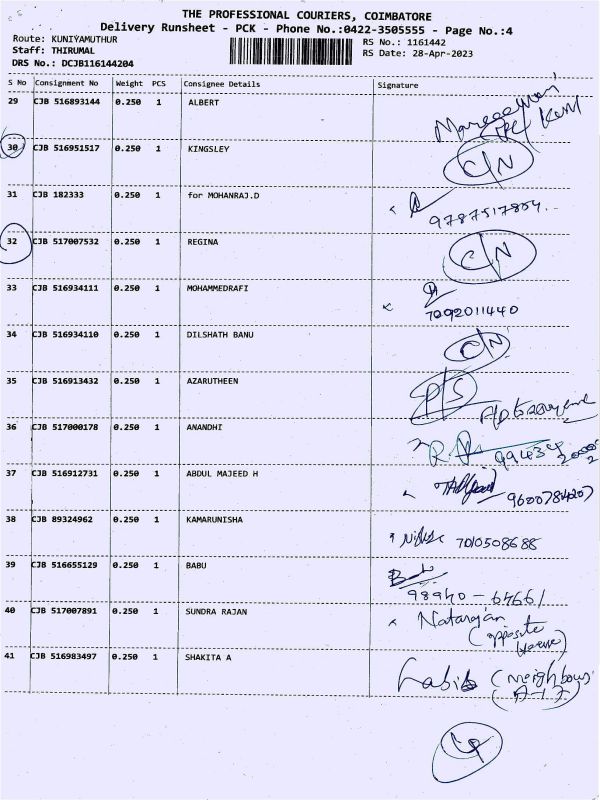 THE PROFESSIONAL COURIERS, COIMBATORE
Delivery Runsheet - PCK - Phone No.:0422-3505555 - Page No.:4
Route: KUNIYAMUTHUR
RS No.: 1161442
Staff: THIRUMAL
RS Date: 28-Apr-2023
DRS No.: DCJB116144204
S No Consignment No Weight PCS Consignee Details Signature
29 CJB 516893144 0.250 1 ALBERT
30 CJB 516951517 0.250 1 KINGSLEY C/N
31 CJB 182333 0.250 1 for MOHANRAJ.D
9787517854
32 CJB 517007532 0.250 1 REGINA C/N
33 CJB 516934111 0.250 1 MOHAMMEDRAFI
7092011440
34 CJB 516934110 0.250 1 DILSHATH BANU C/N
35 CJB 516913432 0.250 1 AZARUTHEEN P/S
36 CJB 517000178 0.250 1 ANANDHI
37 CJB 516912731 0.250 1 ABDUL MAJEED H
9600784207
38 CJB 89324962 0.250 1 KAMARUNISHA
7010508688
39 CJB 516655129 0.250 1 BABU
98940-64661
40 CJB 517007891 0.250 1 SUNDRA RAJAN Natarajan
(opposite
House)
41 CJB 516983497 0.250 1 SHAKITA A
Labib (Neighbour
(A-17)